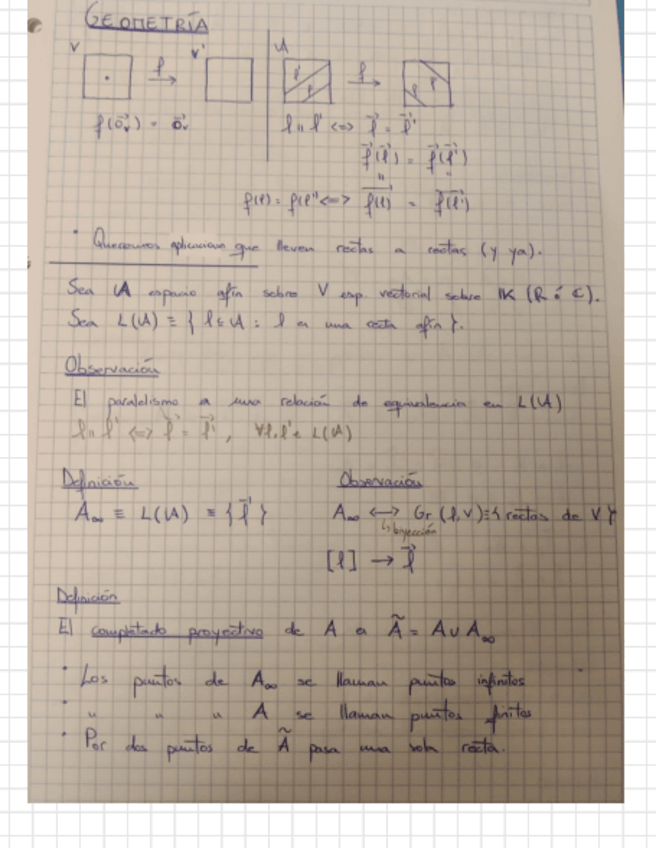 GEOMETRÍA
V f V'
f(o⃗ᵥ) = o⃗ᵥ'
A f
l ∥ l' <=> l⃗ = l⃗'
f⃗(l⃗) = f⃗(l⃗')
" "
f(l) = f(l') <=> f(l)⃗ = f(l')⃗
· Queremos aplicaciones que lleven rectas a rectas (y ya).
Sea A espacio afín sobre V esp. vectorial sobre K (R ó C).
Sea L(A) ≡ { l ⊆ A : l es una recta afín }.
Observación
El paralelismo es una relación de equivalencia en L(A)
l ∥ l' <=> l⃗ = l⃗', ∀ l, l' ∈ L(A)
Definición
A∞ ≡ L(A) ≡ { l⃗ }
Observación
A∞ <-> Gr(1,V) ≡ { rectas de V }
↳ biyección
[l] → l⃗
Definición
El completado proyectivo de A es Ã = A ∪ A∞
· Los puntos de A∞ se llaman puntos infinitos
· " " " A se llaman puntos finitos
· Por dos puntos de Ã pasa una sola recta.